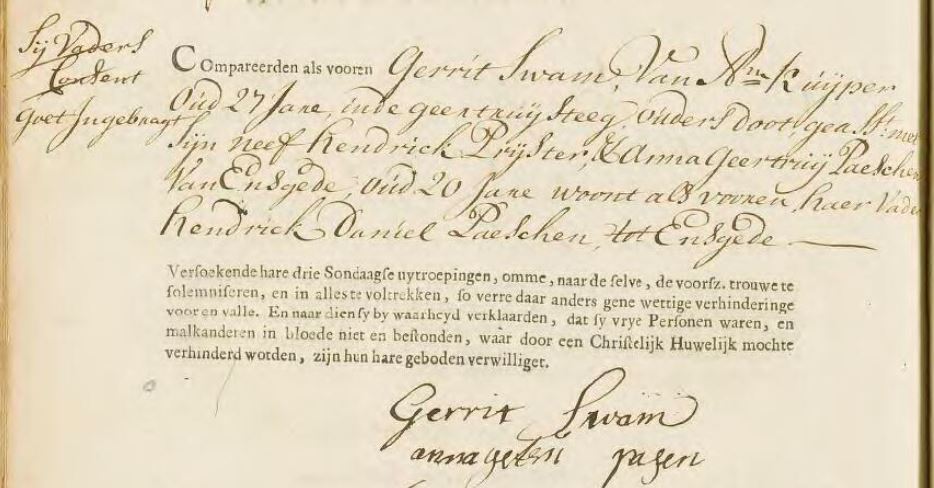 Sij Vaders
Consent
goet Ingebragt
Compareerden als vooren Gerrit Swam, Van Am Kuijper
Oud 27 Jare, inde geertruijsteeg, ouders doot, geasst: met
Sijn neef Hendrick Prijster, & Anna Geertruij Paeschen
Van Ensgede, oud 20 Jare woont als vooren, haer Vader
Hendrick Daniel Paeschen, tot Ensgede
Versoekende hare drie Sondaagse uytroepingen, omme, naar de selve, de voorsz. trouwe te
solemniseren, en in alles te voltrekken, so verre daar anders gene wettige verhinderinge
vooren valle. En naar dien sy by waarheyd verklaarden, dat sy vrye Personen waren, en
malkanderen in bloede niet en bestonden, waar door een Christelijk Huwelijk mochte
verhinderd worden, zijn hun hare geboden verwilliget.
Gerrit Swam
anna pasen